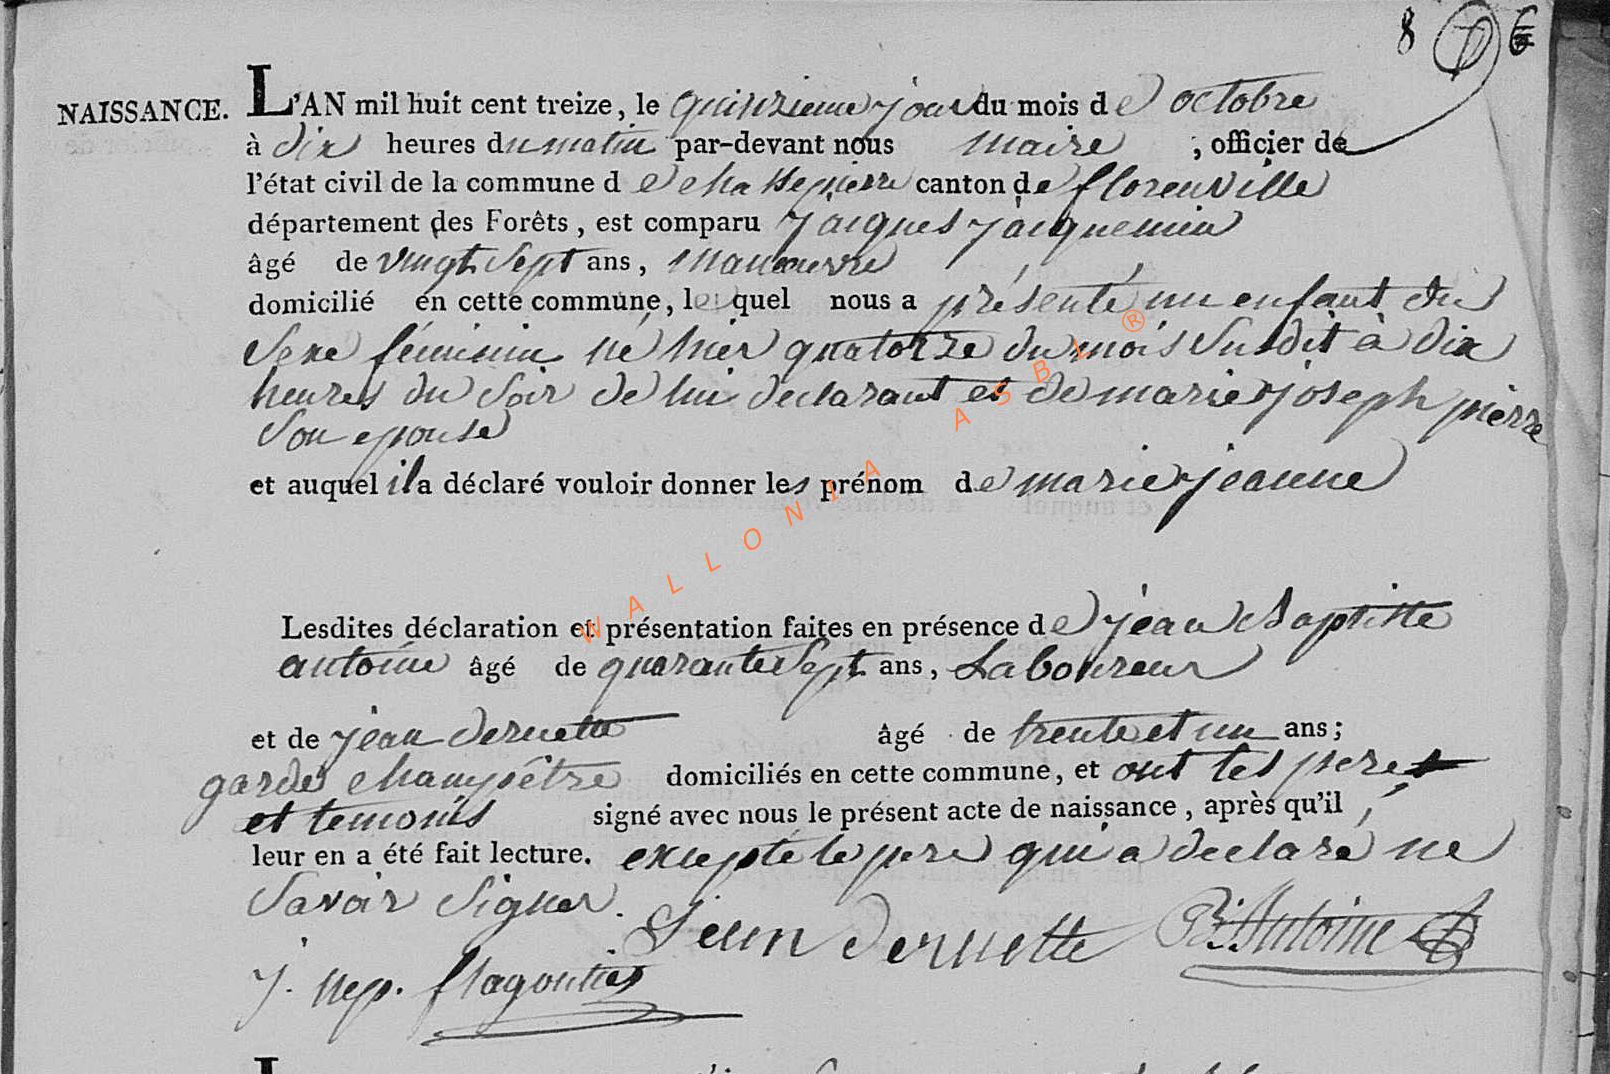 8 7 6
NAISSANCE. L'AN mil huit cent treize, le quinzieme jour du mois de octobre
à dix heures du matin par-devant nous maire ; officier de
l'état civil de la commune de chassepierre canton de florenville
département des Forêts, est comparu jacques jacquemin
âgé de vingt sept ans, manoeuvre
domicilié en cette commune, lequel nous a présenté un enfant du
sexe féminin né hier quatorze du mois susdit à dix
heures du soir de lui declarant et de marie joseph pierre
son epouse
et auquel il a déclaré vouloir donner les prénom de marie jeanne
Lesdites déclaration et présentation faites en présence de jean Baptiste
antoine âgé de quarante sept ans, Laboureur
et de jean dernette âgé de trente et un ans;
garde champêtre domiciliés en cette commune, et ont les pere
et temoins signé avec nous le présent acte de naissance, après qu'il
leur en a été fait lecture. excepté le pere qui a declaré ne
savoir signer.
Jean dernette
B. Antoine
j. nep. flagontier
WALLONIA ASBL ®